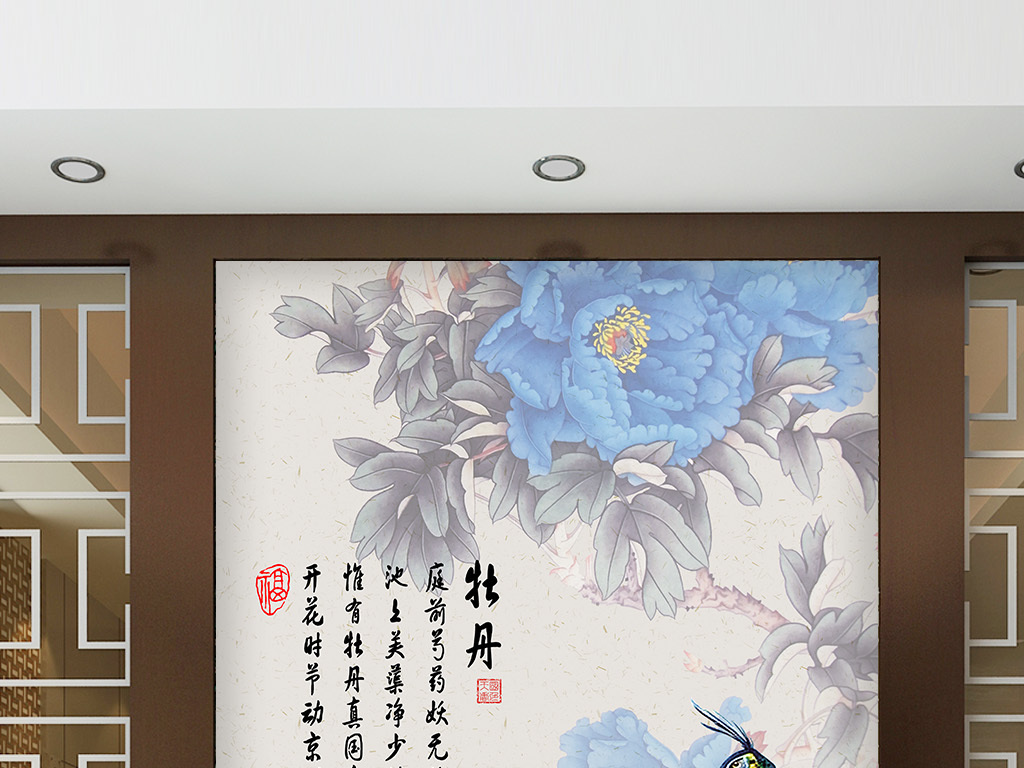 牡丹
庭前芍药妖无
池上美蕖净少
惟有牡丹真国
开花时节动京
福